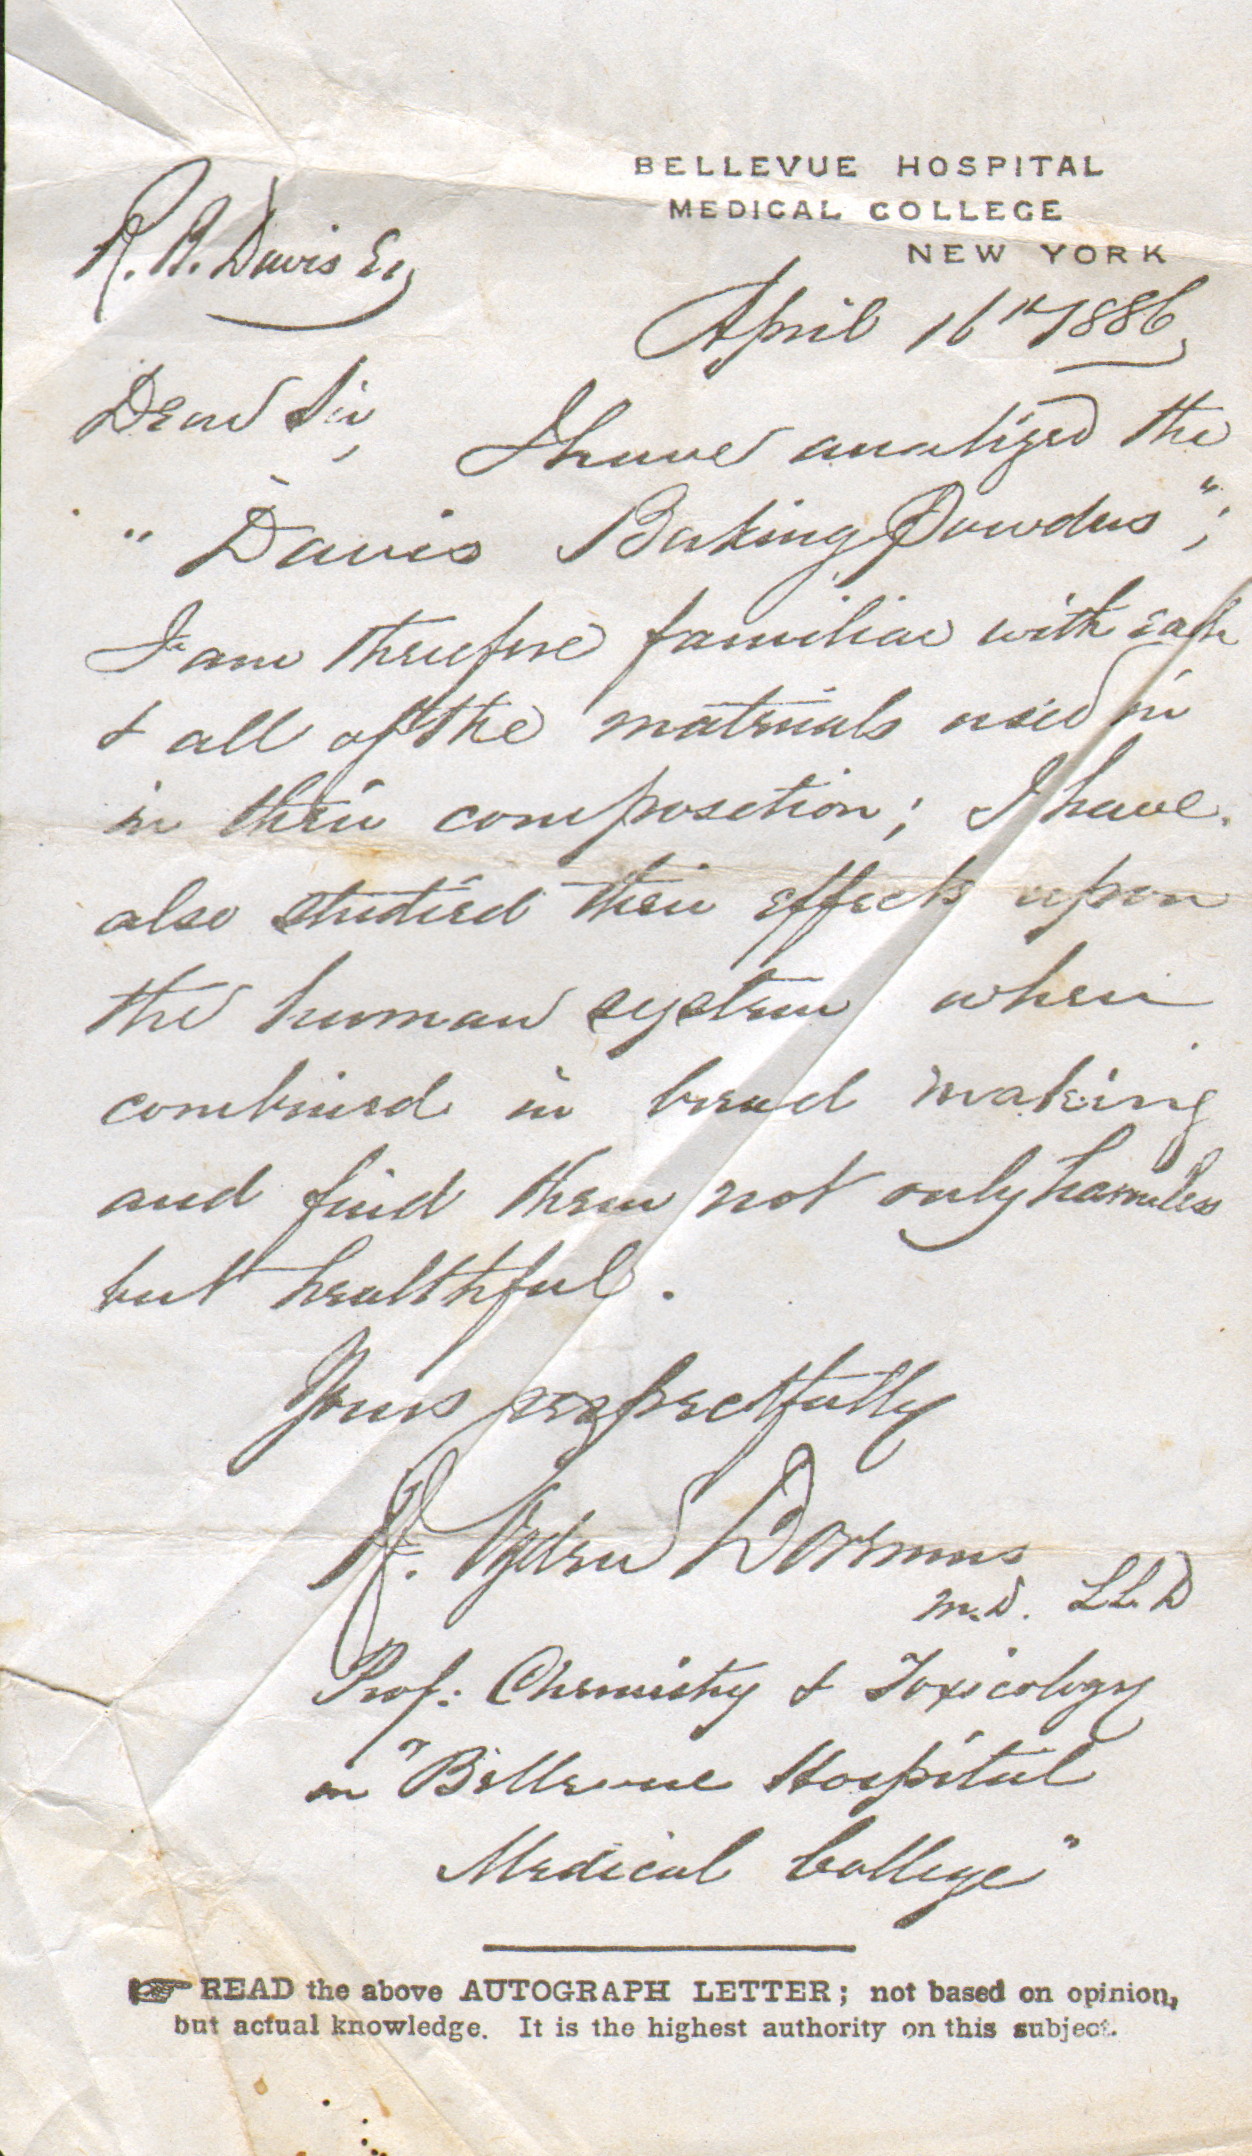 BELLEVUE HOSPITAL
MEDICAL COLLEGE
NEW YORK
R. B. Davis Esq
April 16th 1886,
Dear Sir,
I have analized the
"Davis Baking Powders";
I am therefore familiar with each
& all of the materials used in
in their composition; I have
also studied their effects upon
the human system when
combined in bread making
and find them not only harmless
but healthful.
Yours respectfully
R. Ogden Doremus
M.D. LL.D
Prof. Chemistry & Toxicology
in "Bellevue Hospital
Medical College"
☞ READ the above AUTOGRAPH LETTER; not based on opinion,
but actual knowledge. It is the highest authority on this subject.